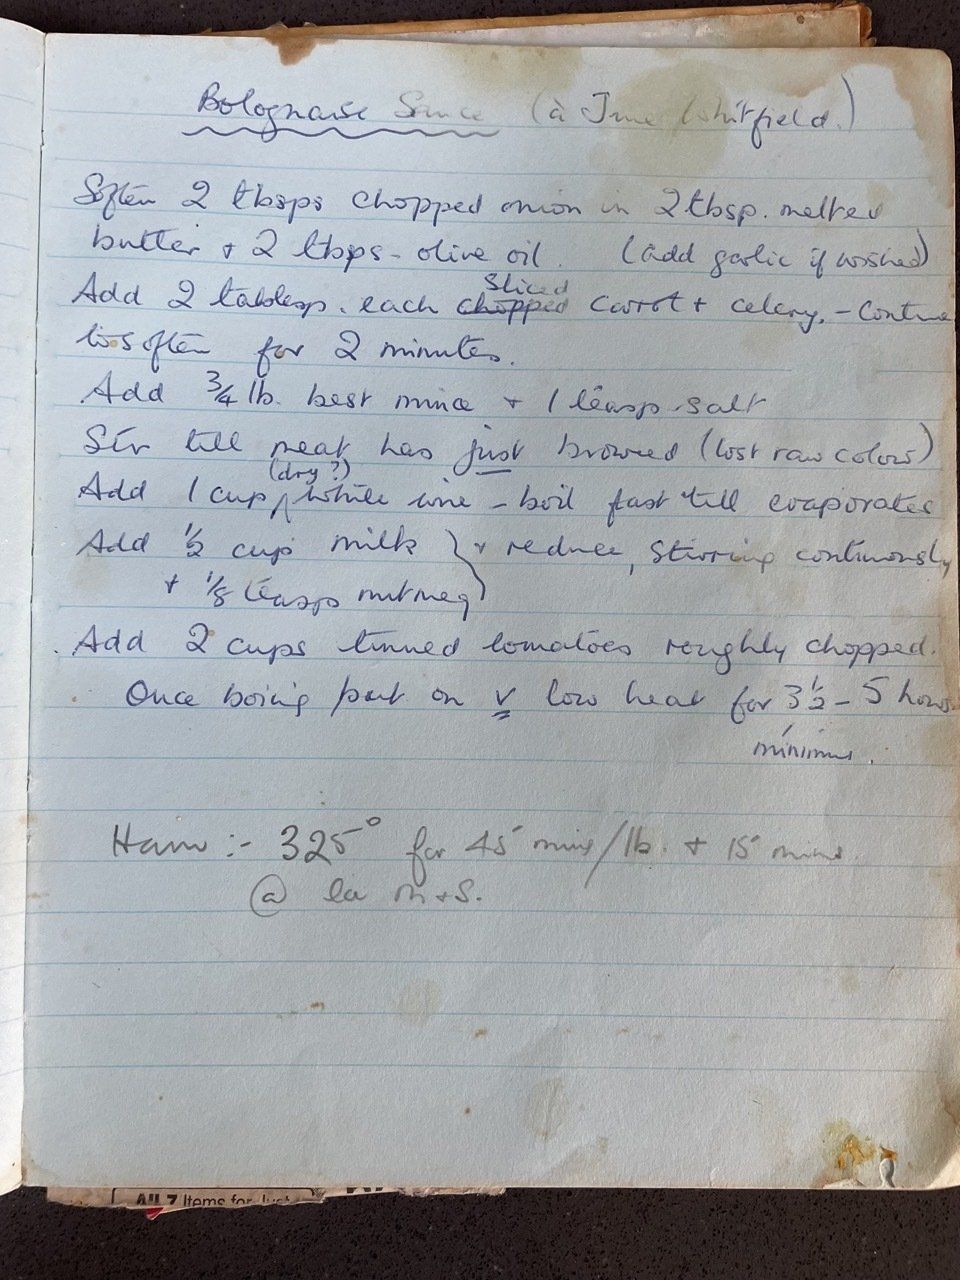 Bolognaise Sauce (à June Whitfield.)
Soften 2 tbsps chopped onion in 2 tbsp. melted
butter + 2 tbsps - olive oil. (add garlic if wished)
Add 2 tablesp. each chopped sliced carrot + celery, - continue
to soften for 2 minutes.
Add 3/4 lb. best mince + 1 teasp salt
Stir till meat has just browned (lost raw colour)
Add 1 cup (dry?) white wine - boil fast till evaporates
Add 1/2 cup milk } + reduce, stirring continuously
+ 1/8 teasp nutmeg
Add 2 cups tinned tomatoes roughly chopped.
Once boiing put on v low heat for 3 1/2 - 5 hours
minimum.
Ham :- 325° for 45 mins/lb. + 15 mins.
@ la M+S.
All 7 Items for Just